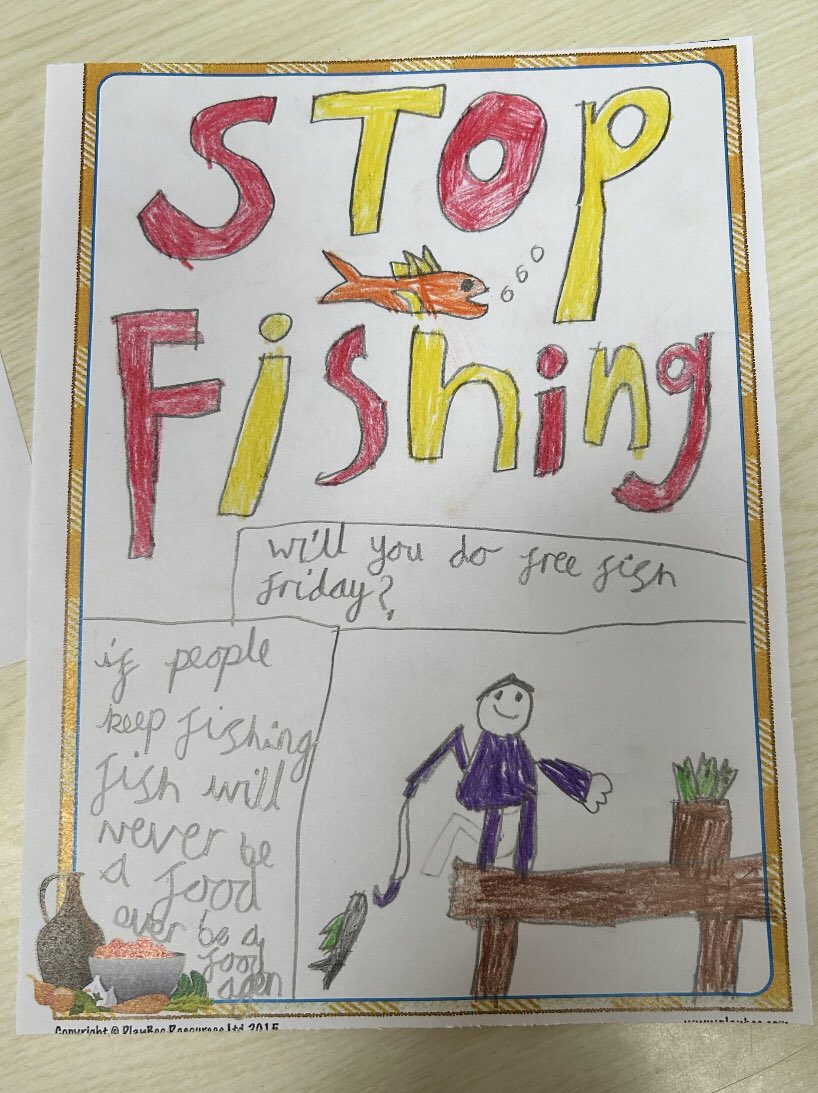 STOP
Fishing
will you do free fish
friday?
if people
keep fishing
fish will
never be
a food
ever be a
food
agen
Copyright © PlayBee Resources Ltd 2015